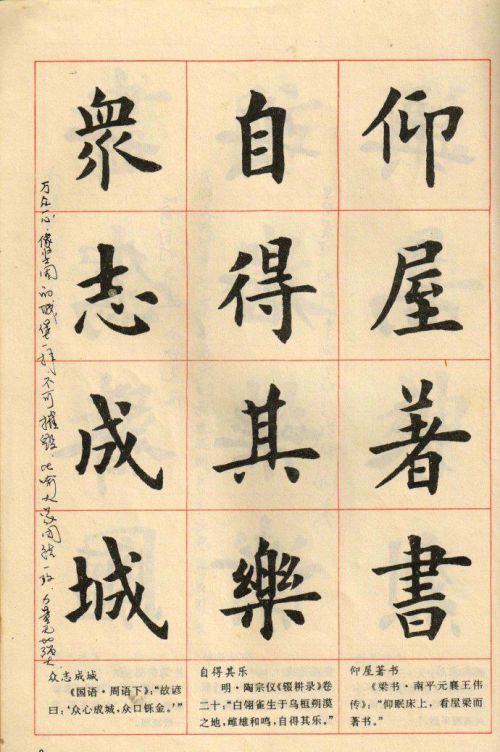 仰屋著書
自得其樂
衆志成城
万众一心,像坚固的城堡一样不可摧毁,比喻大家团结一致,力量无比强大
仰屋著书
《梁书·南平元襄王伟
传》:“仰眠床上,看屋梁而
著书。”
自得其乐
明·陶宗仪《辍耕录》卷
二十:“白翎雀生于乌桓朔漠
之地,雌雄和鸣,自得其乐。”
众志成城
《国语·周语下》:“故谚
曰:‘众心成城,众口铄金。’”